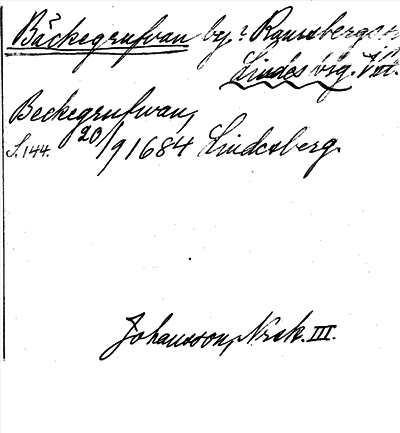 Bäckegrufvan by i Ramsbergs
Lindes bsg. Vstl.
Beckegrufwan,
S. 144. 20/9 1684 Lindesberg.
Johansson, Norsk. III.